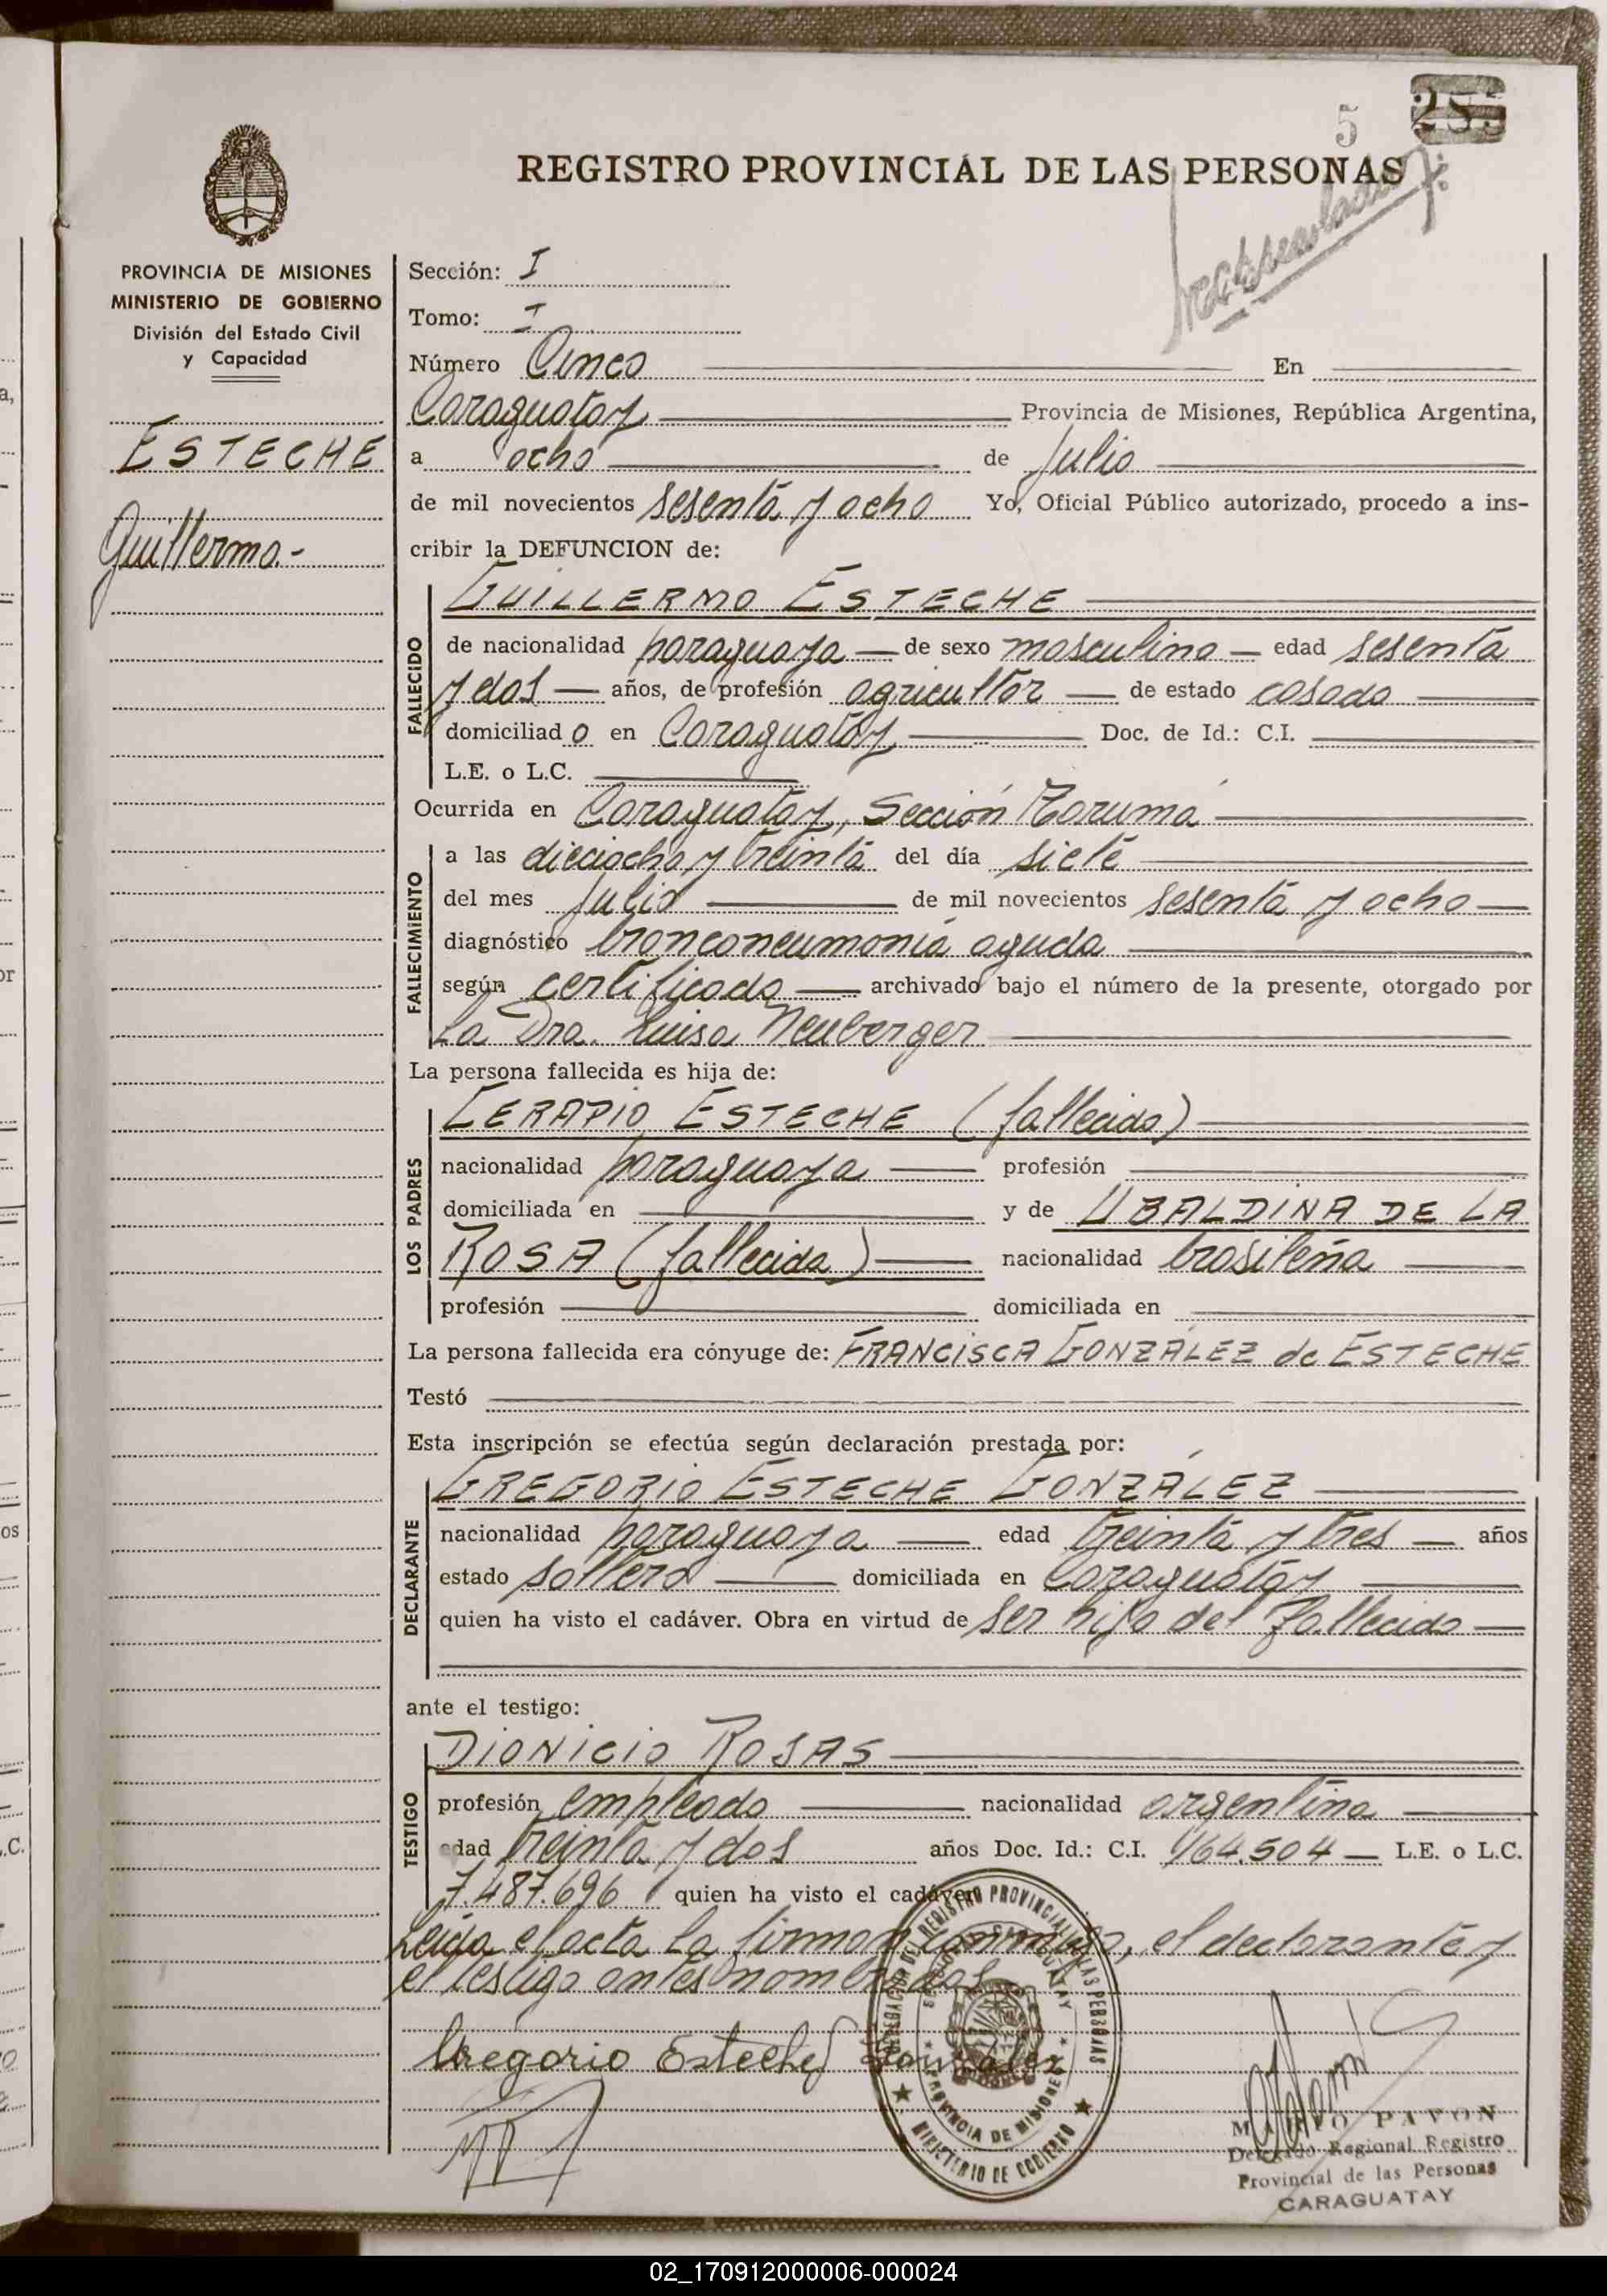 5
REGISTRO PROVINCIAL DE LAS PERSONAS
PROVINCIA DE MISIONES
MINISTERIO DE GOBIERNO
División del Estado Civil
y Capacidad
ESTECHE
Guillermo.-
Sección: I
Tomo: I
Número Cinco En
Caraguatay Provincia de Misiones, República Argentina,
a ocho de Julio
de mil novecientos sesenta y ocho Yo, Oficial Público autorizado, procedo a ins-
cribir la DEFUNCION de:
FALLECIDO
GUILLERMO ESTECHE
de nacionalidad paraguaya de sexo masculino edad sesenta
y dos años, de profesión agricultor de estado casado
domiciliad o en Caraguatay Doc. de Id.: C.I.
L.E. o L.C.
Ocurrida en Caraguatay, Sección Tarumá
FALLECIMIENTO
a las dieciocho y treinta del día siete
del mes Julio de mil novecientos sesenta y ocho
diagnóstico bronconeumonia aguda
según certificado archivado bajo el número de la presente, otorgado por
La Dra. Luisa Neuberger
La persona fallecida es hija de:
LOS PADRES
CERAPIO ESTECHE (fallecido)
nacionalidad paraguaya profesión
domiciliada en y de UBALDINA DE LA
ROSA (fallecida) nacionalidad brasileña
profesión domiciliada en
La persona fallecida era cónyuge de: FRANCISCA GONZÁLEZ de ESTECHE
Testó
Esta inscripción se efectúa según declaración prestada por:
DECLARANTE
GREGORIO ESTECHE GONZÁLEZ
nacionalidad paraguaya edad treinta y tres años
estado soltero domiciliada en Caraguatay
quien ha visto el cadáver. Obra en virtud de ser hijo del fallecido
ante el testigo:
TESTIGO
DIONICIO ROSAS
profesión empleado nacionalidad argentina
edad treinta y dos años Doc. Id.: C.I. 164.504 L.E. o L.C.
7.487.696 quien ha visto el cadáver
Leída el acta la firman conmigo, el declarante y
el testigo antes nombrados
Gregorio Esteche Gonzalez
DELEGACION DEL REGISTRO PROVINCIAL DE LAS PERSONAS
CARAGUATAY
PROVINCIA DE MISIONES
MINISTERIO DE GOBIERNO
MARIO PAVON
Delegado Regional Registro
Provincial de las Personas
CARAGUATAY
02_170912000006-000024